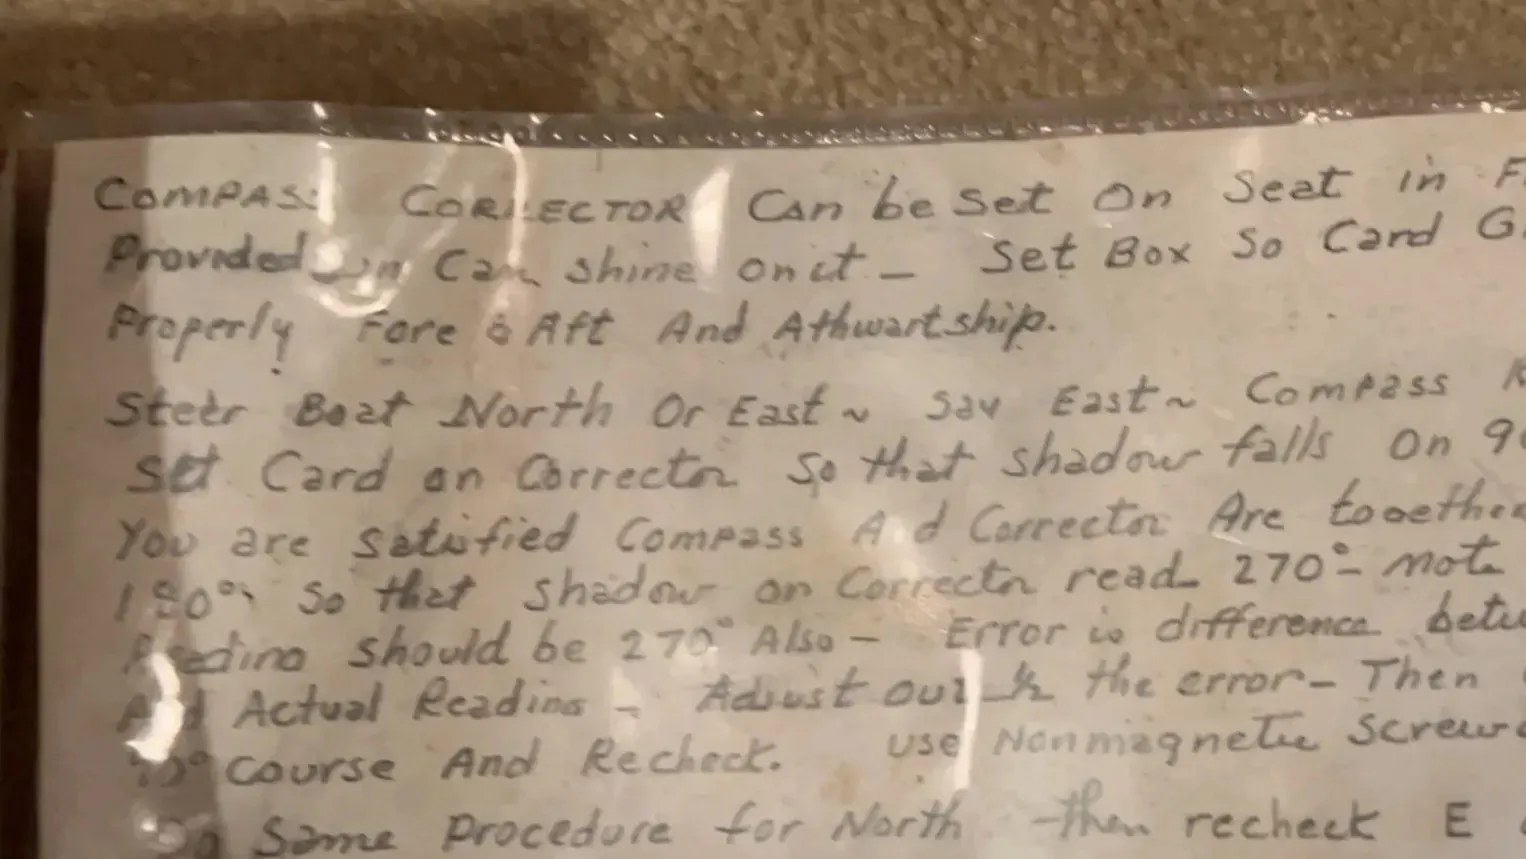 COMPASS CORRECTOR Can be Set On Seat in
Provided Can shine on it – Set Box So Card
Properly Fore & Aft And Athwartship.
Steer Boat North Or East ~ Say East ~ Compass
Set Card on Corrector So that shadow falls on
You are satisfied Compass And Corrector Are together
180° So that shadow on Corrector read 270° – note
Reading should be 270° Also – Error is difference
And Actual Reading – Adjust out ½ the error – Then
90° Course And Recheck. Use Nonmagnetic
Do Same Procedure for North – then recheck E